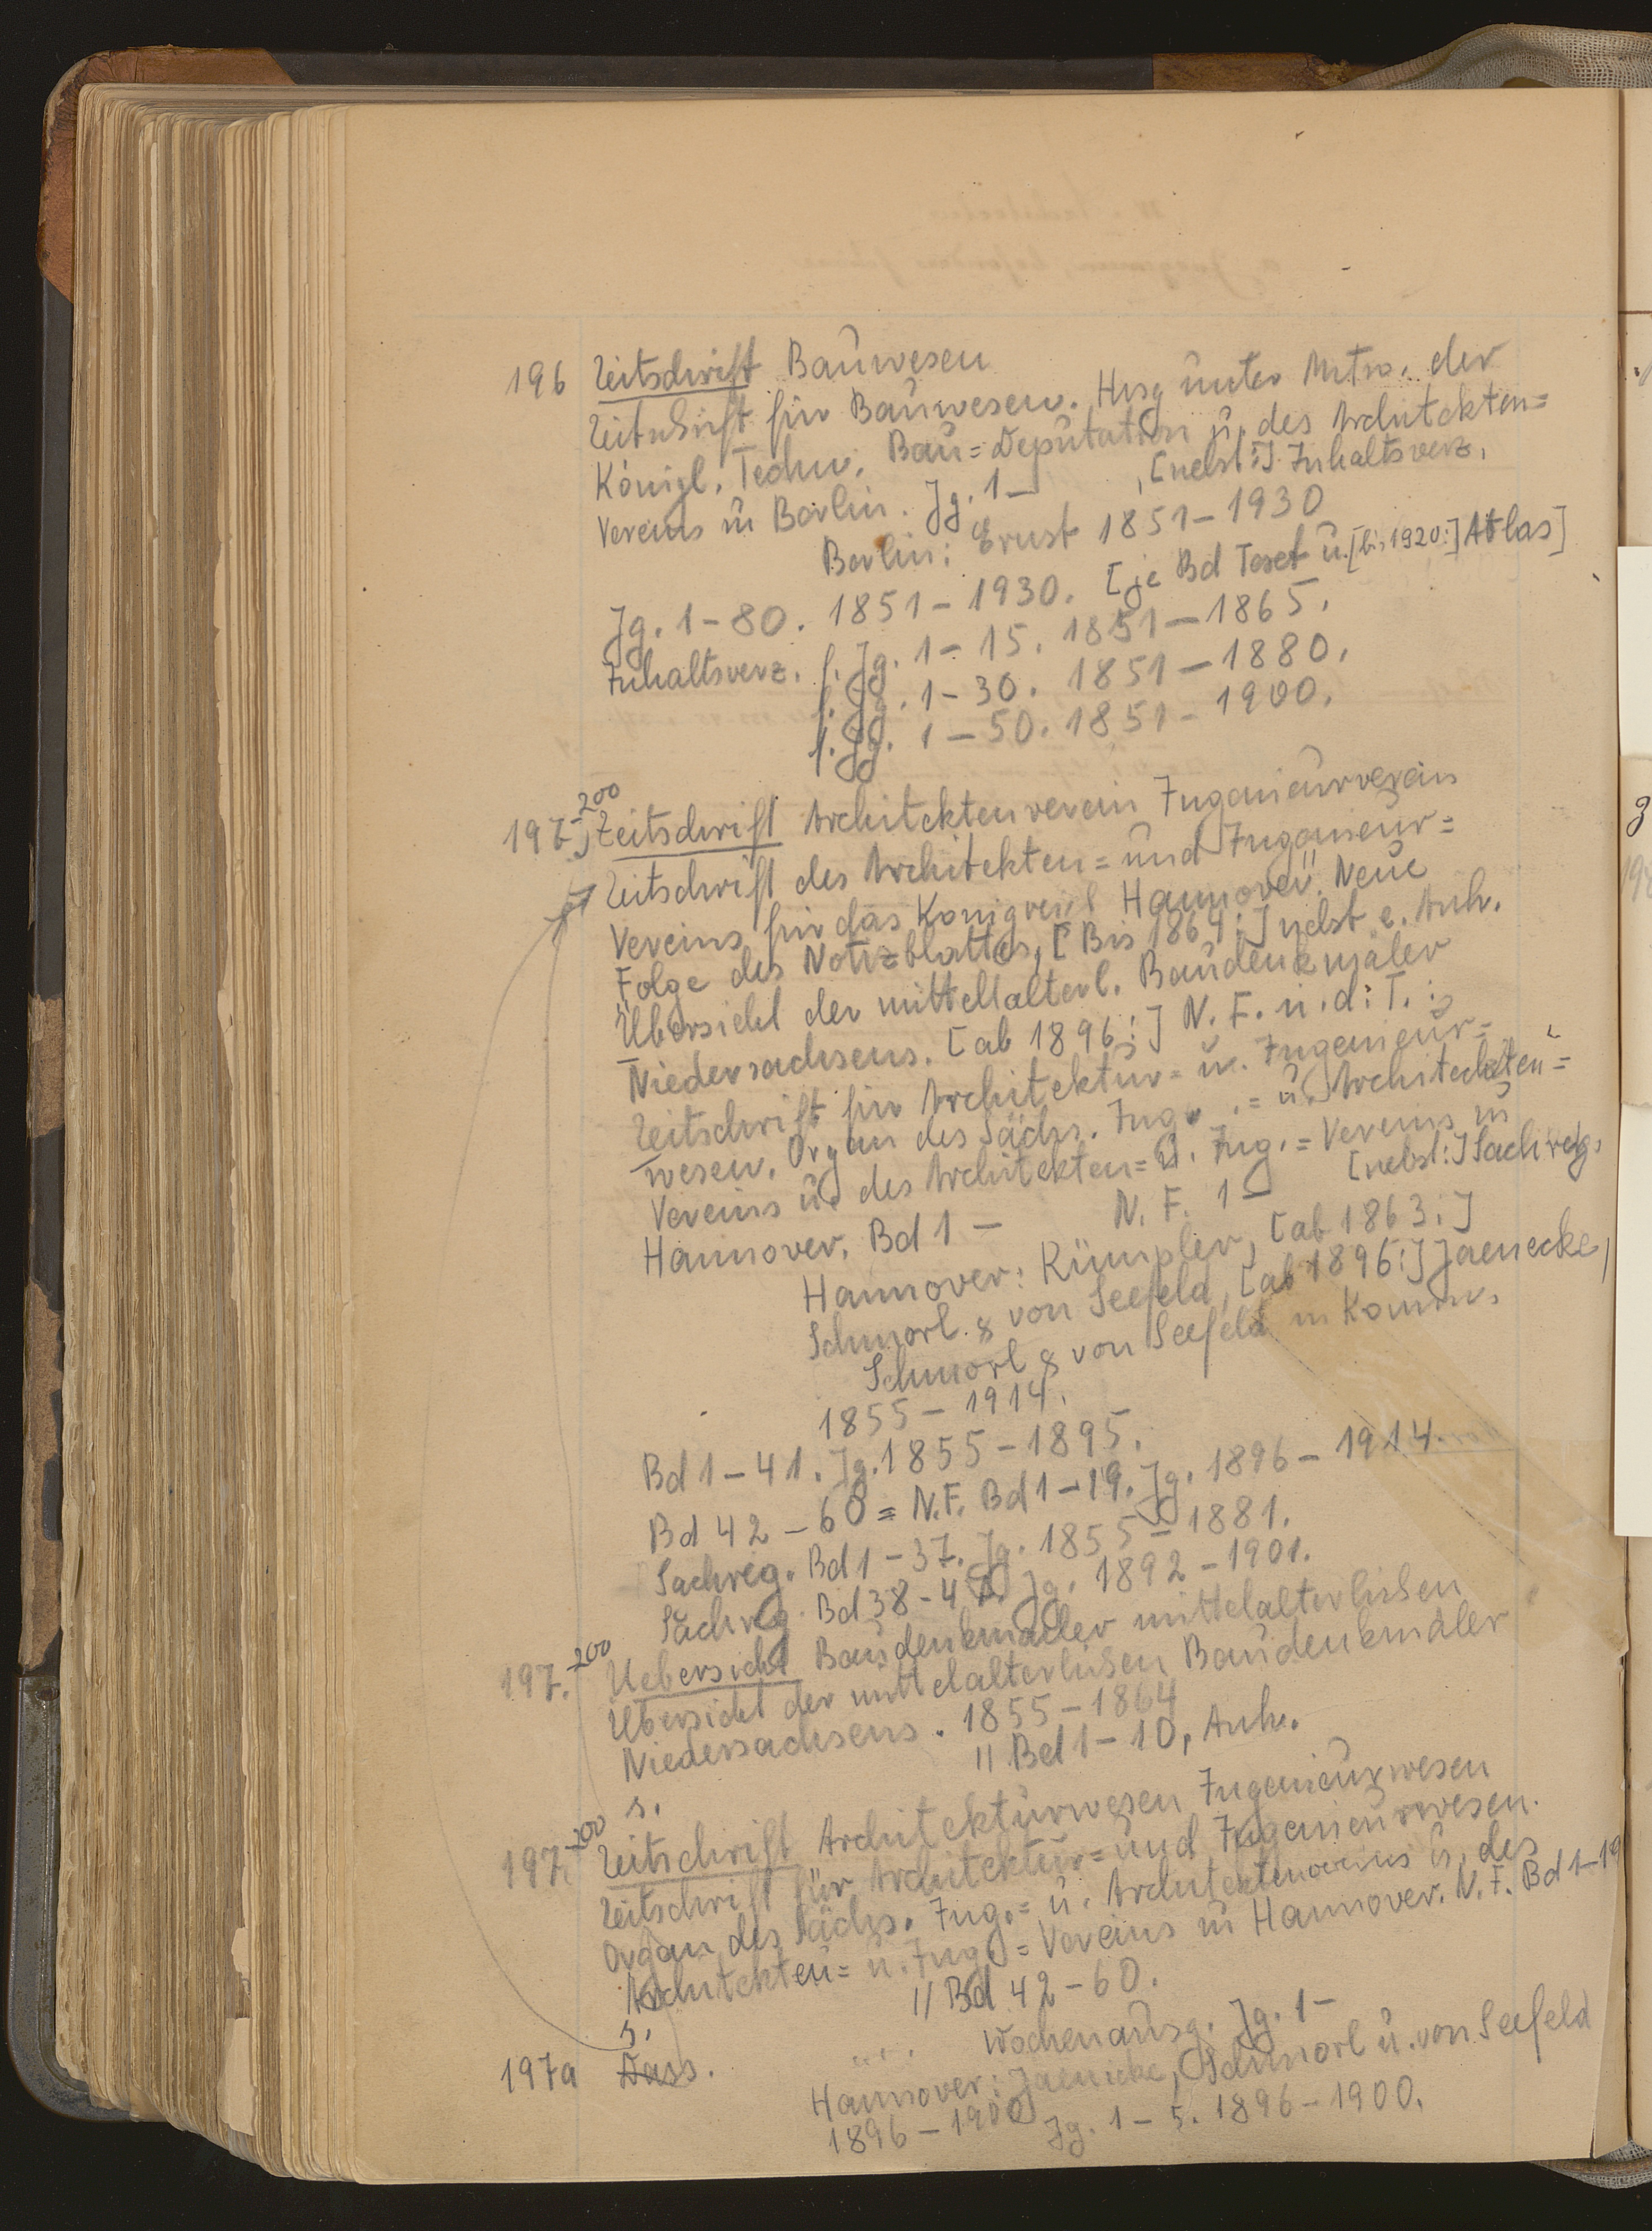 196 Zeitschrift Bauwesen
Zeitschrift für Bauwesen. Hrsg unter Mitw. der
Königl. Techn. Bau=Deputation u. des Architekten=
Vereins in Berlin. Jg. 1 — , [nebst:] Inhaltsverz.
Berlin: Ernst 1851–1930
Jg. 1–80. 1851–1930. [je Bd Text u. [bis 1920:] Atlas]
Inhaltsverz. f. Jg. 1–15. 1851–1865.
f. Jg. 1–30. 1851–1880.
f. Jg. 1–50. 1851–1900.
197-200 Zeitschrift Architektenverein Ingenieurverein
Zeitschrift des Architekten= und Ingenieur=
Vereins für das Königreich Hannover. Neue
Folge des Notizblattes, [Bis 1864:] nebst e. Anh.
Übersicht der mittelalterl. Baudenkmäler
Niedersachsens. [ab 1896:] N. F. u. d. T.:
Zeitschrift für Architektur= u. Ingenieur=
wesen. Organ des Sächs. Ing.= u. Architekten=
Vereins u. des Architekten= u. Ing.=Vereins in
Hannover. Bd 1 — N. F. 1 — [nebst:] Sachreg.
Hannover: Rümpler, [ab 1863:]
Schmorl & von Seefeld, [ab 1896:] Jaenecke,
Schmorl & von Seefeld in Komm.
1855–1914.
Bd 1–41. Jg. 1855–1895.
Bd 42–60 = N.F. Bd 1–19. Jg. 1896–1914.
Sachreg. Bd 1–37. Jg. 1855–1881.
Sachreg. Bd 38–4 Jg. 1892–1901.
197-200 Uebersicht Baudenkmäler mittelalterlichen
Übersicht der mittelalterlichen Baudenkmäler
Niedersachsens. 1855–1864
s. // Bd 1–10, Anh.
197-200 Zeitschrift Architekturwesen Ingenieurwesen
Zeitschrift für Architektur= und Ingenieurwesen.
Organ des Sächs. Ing.= u. Architektenvereins u. des
Architekten= u. Ing.=Vereins in Hannover. N. F. Bd 1–19
s. // Bd 42–60.
197a Dass. .... Wochenausg. Jg. 1–
Hannover: Jaenicke, Schmorl u. von Seefeld
1896–1900 Jg. 1–5. 1896–1900.